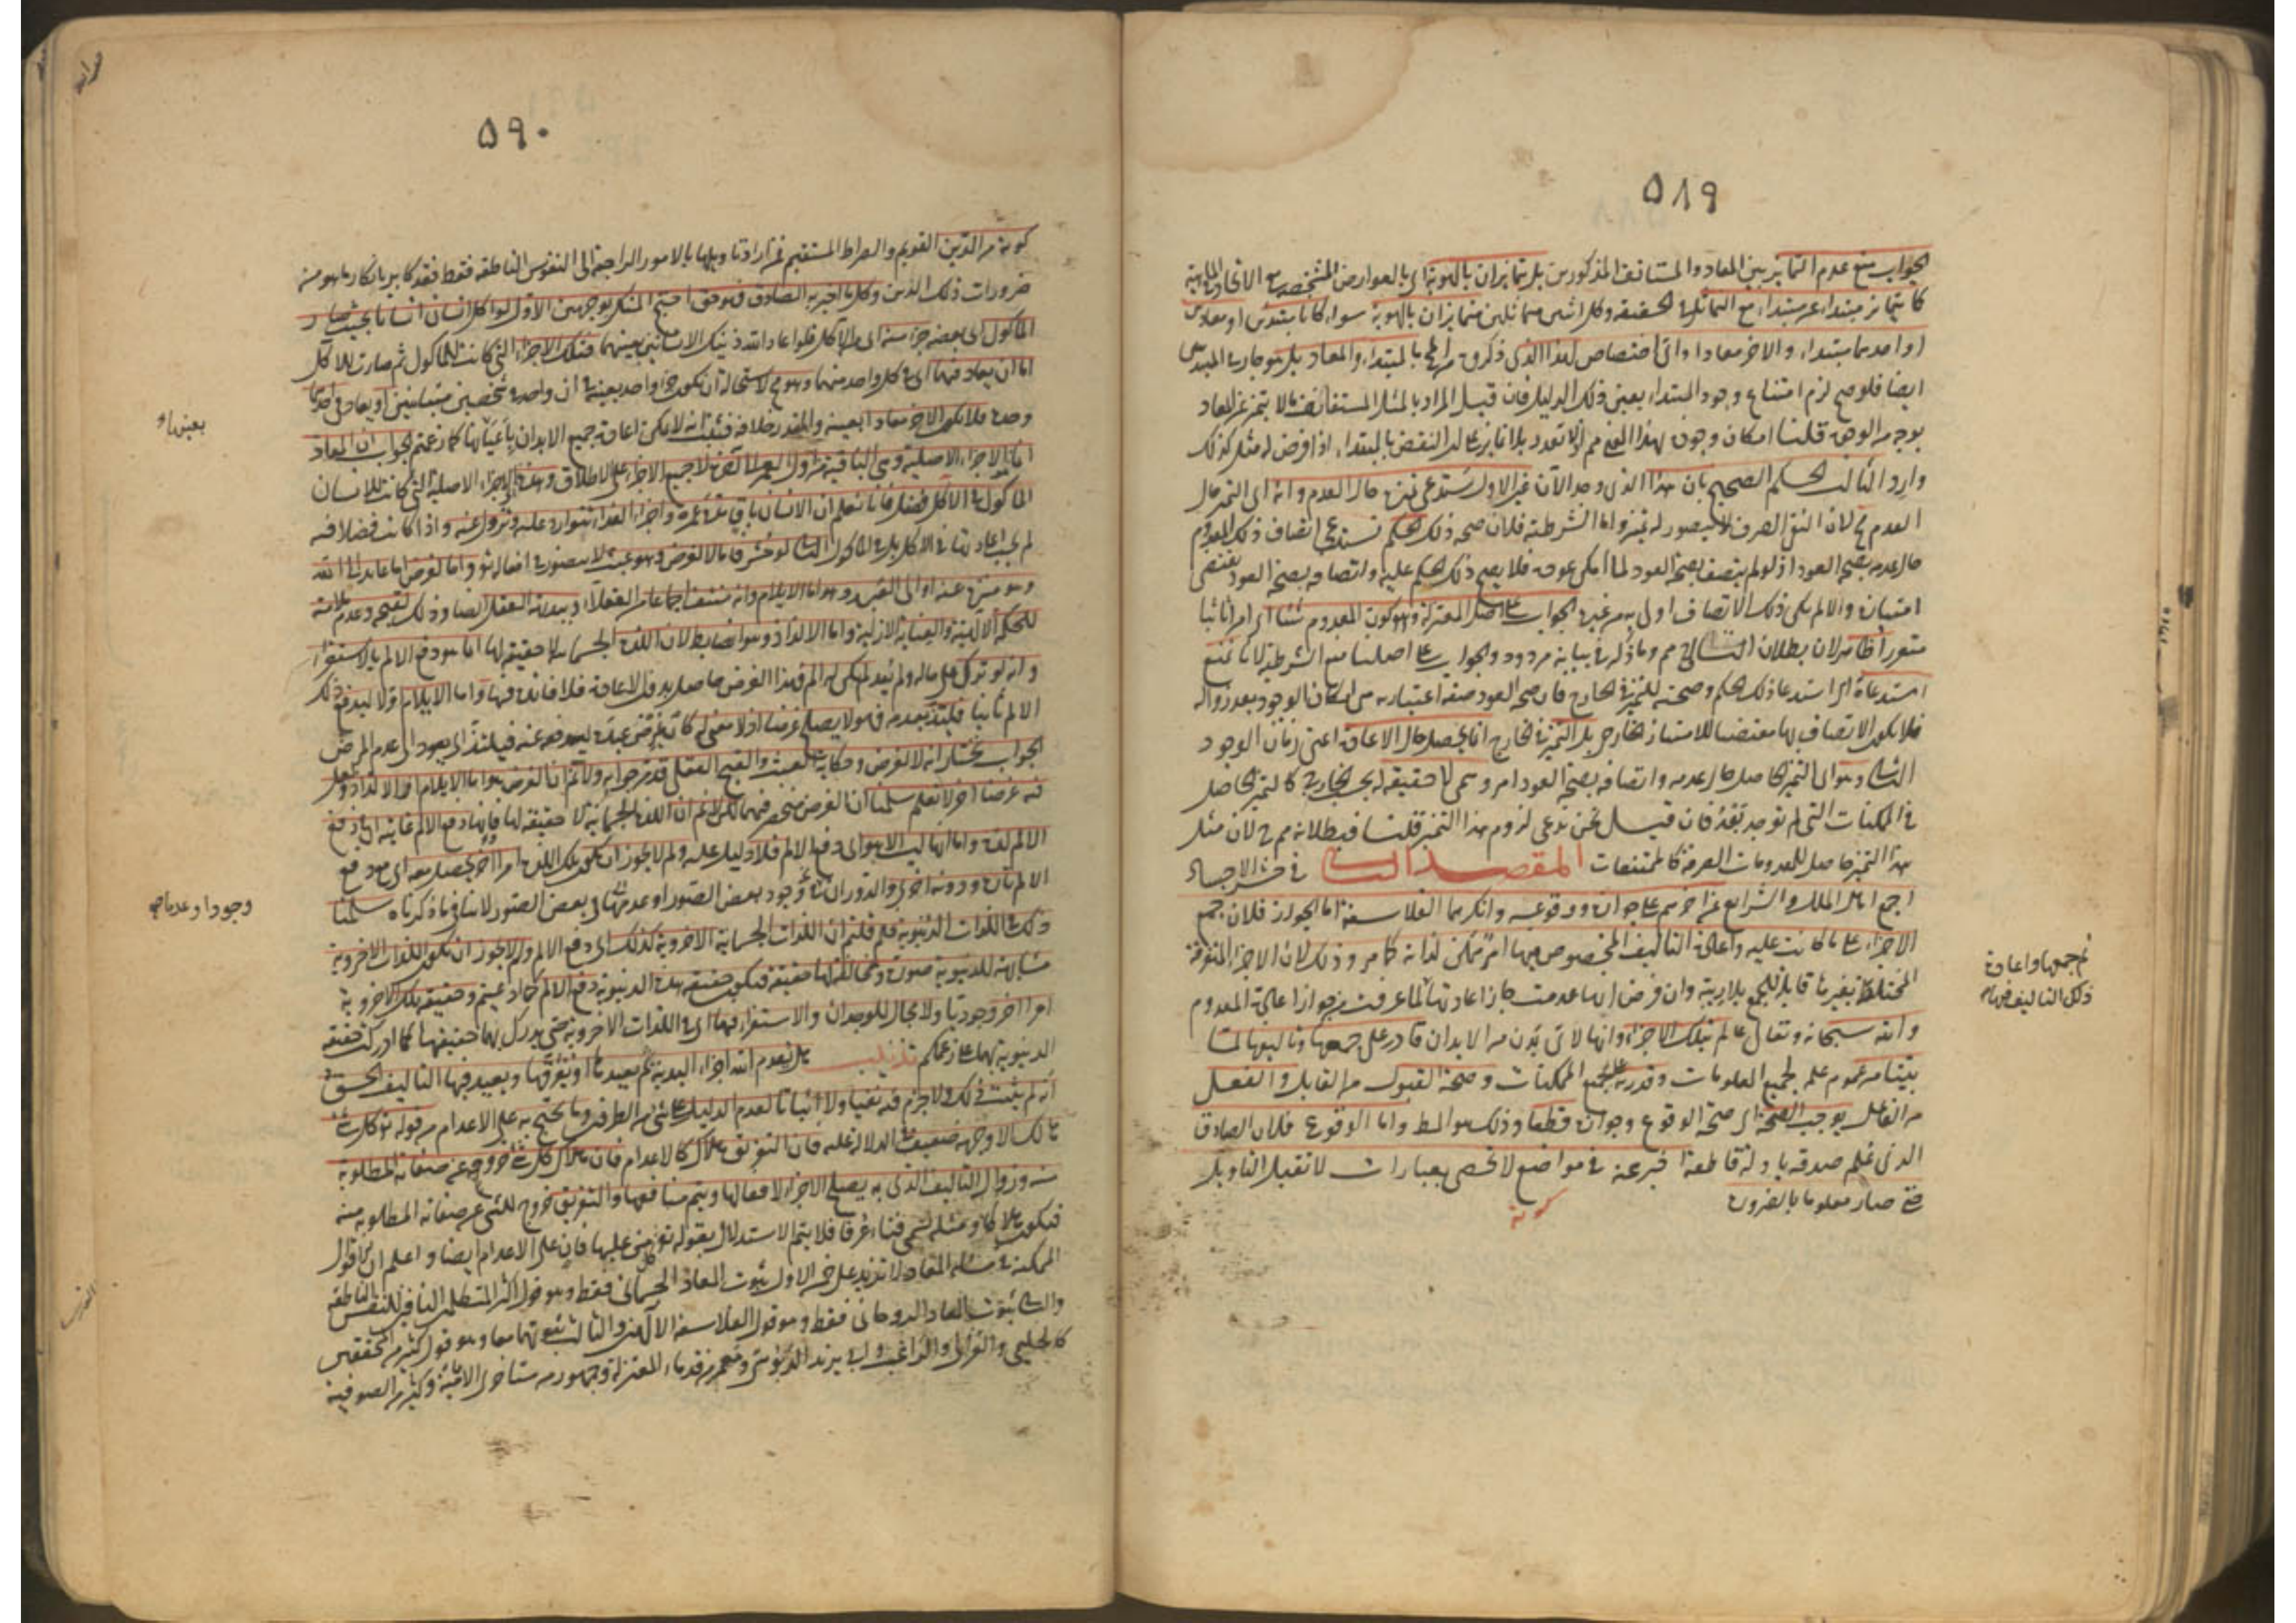 ٥٨٩
الجواب منع عدم التمايز بين المعاد والمستانف المذكورين بل يتمايزان بالهوية اى بالعوارض المشخصة مع الاتحاد فى الماهية
كما يتمايز مبتداء عن مبتداء مع التماثل فى الحقيقة وكل اثنين متماثلين متمايزان بالهوية سواء كانا مبتدئين او معادين
او احدهما مبتداء والاخر معادا واى اختصاص لهذا الذى ذكرتموه بالمبتداء والمعاد بل هو جار فى المبتدئين
ايضا فلو صح لزم امتناع وجود المبتداء بعين ذلك الدليل فان قيل المراد بالمثل المستانف ما لا يتميز عن المعاد
بوجه من الوجوه قلنا امكان وجود بهذا المعنى مم اذ لا تعدد بلا تمايز النقض بالمبتداء اذا فرض له مثل كذلك
وارد الثالث الحكم الصحيح بان هذا الذى وجد الآن غير الاول يستدعى تميزه حال العدم وانه اى التميز حال
العدم مح لان النفى الصرف لا يتصور له تميز واما الشرطية فلان صحة ذلك الحكم تستدعى اتصاف ذلك المعدوم
حال عدمه بصحة العود اذ لو لم يتصف بصحة العود لما امكن عوده فلا يصح ذلك الحكم عليه واتصافه بصحة العود يقتضى
امتيازه والا لم يكن ذلك الاتصاف اولى به من غيره الجواب على اصل المعتزلة وهو كون المعدوم شيئا اى امرا ثابتا
متقررا ظاهر لان بطلان التالى مم وما ذكر فى بيانه مردود والجواب على اصلنا منع الشرطية لانا نمنع
استدعاء اى استدعاء ذلك الحكم وصحته للتميز فى الخارج فان صحة العود صفة اعتبارية هى امكان الوجود بعد زواله
فلا يكون الاتصاف بها مقتضيا للامتياز الخارجى بل التميز فى الخارج انما يحصل حال الاعادة اعنى زمان الوجود
الثانى وهو اى التميز الحاصل حال عدمه واتصافه بصحة العود امر وهمى لا حقيقة له بحسب الخارج كالتميز الحاصل
فى الممكنات التى لم توجد بعد فان قيل نحن ندعى لزوم هذا التميز قلنا فبطلانه مم لان مثل
هذا التميز حاصل للمعدومات الصرفة كالممتنعات المقصد الثانى فى حشر الاجساد
اجمع اهل الملل والشرايع عن اخرهم على جوازه ووقوعه وانكرهما الفلاسفة اما الجواز فلان جمع
الاجزاء على ما كانت عليه واعادة التاليف المخصوص فيها امر ممكن لذاته كما مر وذلك لان الاجزاء المتفرقة
المختلطة بغيرها قابلة للجمع بلا ريبة وان فرض انها عدمت جاز اعادتها لما عرفت من جواز اعادة المعدوم
والله سبحانه وتعالى عالم بتلك الاجزاء وانها لاى بدن من الابدان قادر على جمعها وتاليفها لما
بينا من عموم علمه لجميع المعلومات وقدرته على جميع الممكنات وصحة القبول من القابل والفعل
من الفاعل يوجب الصحة اى صحة الوقوع وجوازه قطعا وذلك هو المط واما الوقوع فلان الصادق
الذى علم صدقه بادلة قاطعة اخبر عنه فى مواضع لا تحصى بعبارات لا تقبل التاويل
حتى صار معلوما بالضرورة
كونه
ثم جمعها واعادة
ذلك التاليف فيها
٥٩٠
كونه من الدين القويم والصراط المستقيم فمن اراد تاويلها بالامور الراجعة الى النفوس الناطقة فقط فقد كابر بانكار ما هو من
ضرورات ذلك الدين وكل ما اخبر به الصادق فهو حق احتج المنكر بوجهين الاول لو اكل انسان انسانا بحيث صار
المأكول اى بعضه جزءا منه اى من الآكل فلو اعاد الله ذينك الانسانين بعينهما فتلك الاجزاء التى كانت للمأكول ثم صارت للآكل
اما ان يعاد فيهما اى فى كل واحد منهما وهو مح لاستحالة ان يكون جزء واحد بعينه فى آن واحد فى شخصين متباينين او يعاد فى احدهما
وحده فلا يكون الاخر معادا بعينه والمقدر خلافه فثبت انه لا يمكن اعادة جميع الابدان باعيانها كما زعمتم الجواب ان المعاد
انما هو الاجزاء الاصلية وهى الباقية من اول العمر الى آخره لا جميع الاجزاء على الاطلاق وهذه الاجزاء الاصلية التى كانت للانسان
المأكول فى الآكل فضل فانا نعلم ان الانسان باق مدة عمره واجزاء الغذاء تتوارد عليه وتزول عنه واذا كانت فضلا فيه
لم يجب اعادتها فى الآكل بل فى المأكول الثانى لو حشر فاما لا لغرض وهو عبث لا يتصور فى افعاله تع واما لغرض اما عائد الى الله
وهو منزه عنه او الى العبد وهو اما الايلام وانه منتف اجماعا من العقلاء وبديهة العقل ايضا وذلك لقبحه وعدم ملايمته
للحكمة الآلهية والعناية الازلية واما الالذاذ وهو ايضا بط لان اللذة الجسمانية لا حقيقة لها انما هو دفع الالم بالاستقراء
وانه لو ترك على حاله ولم يعد لم يكن له الم فهذا الغرض حاصل بدون الاعادة فلا فائدة فيها واما الايلام اولا ليدفع ذلك
الالم ثانيا فيلتذ بعدمه فهو لا يصلح غرضا اذ لا معنى له كان يمرض عبده ليدفعه عنه فيلتذ اى يعود الى عدم المرض
الجواب نختار انه لا لغرض وحكاية العبث والقبح العقلى قد مر جوابه ولا نم ان الغرض هو اما الايلام او الالذاذ ولعل
فيه غرضا آخر لا نعلمه سلمنا ان الغرض منحصر فيهما لكن لا نم ان اللذة الجسمانية لا حقيقة لها وانها دفع الالم غايته ان فى دفع
الالم لذة واما انها ليست الا هو اى دفع الالم فلا دليل عليه ولم لا يجوز ان يكون تلك اللذة امرا آخر يحصل معه اى مع دفع
الالم تارة ودونه اخرى والدوران وجود بعض الصور او عدمهما فى بعض الصور لا ينافى ما ذكرناه سلمنا
ذلك فى اللذات الدنيوية فلم قلتم ان اللذات الجسمانية الاخروية كذلك اى دفع الالم ولم لا يجوز ان تكون اللذات الاخروية
مشابهة للدنيوية صورة ومخالفة لها حقيقة فيكون حقيقة هذه الدنيوية دفع الالم كما ادعيتم وحقيقة تلك الاخروية
امرا آخر وجوديا ولا مجال للوجدان والاستقراء فيها اى فى اللذات الاخروية حتى يدرك بهما حقيقتها كما ادركت حقيقة
الدنيوية بهما على زعمكم تذنيب هل يعدم الله اجزاء البدنية ثم يعيدها او يفرقها ويعيد فيها التاليف الحق
انه لم يثبت ذلك ولا جزم فيه نفيا ولا اثباتا لعدم الدليل على شئ من الطرفين وما يحتج به على الاعدام من قوله تع كل شئ
هالك الا وجهه ضعيف فى الدلالة عليه فان التفريق هلاك كالاعدام فان هلاك كل شئ خروجه عن صفاته المطلوبة
منه وزوال التاليف الذى به يصلح الاجزاء لافعالها ويتم منافعها والتفريق خروج للشئ عن صفاته المطلوبة منه
فيكون هلاكا ومثله يسمى فناء عرفا فلا يتم الاستدلال بقوله تع كل من عليها فان على الاعدام ايضا واعلم ان الاقوال
الممكنة فى مسئلة المعاد لا تزيد على خمسة الاول ثبوت المعاد الجسمانى فقط وهو قول اكثر المتكلمين النافين للنفس الناطقة
والثانى ثبوت المعاد الروحانى فقط وهو قول الفلاسفة الآلهيين والثالث ثبوتهما معا وهو قول كثير من المحققين
كالحليمى والغزالى والراغب وابى زيد الدبوسى ومعمر من قدماء المعتزلة وجمهور من متاخرى الامامية وكثير من الصوفية
وجودا وعدما